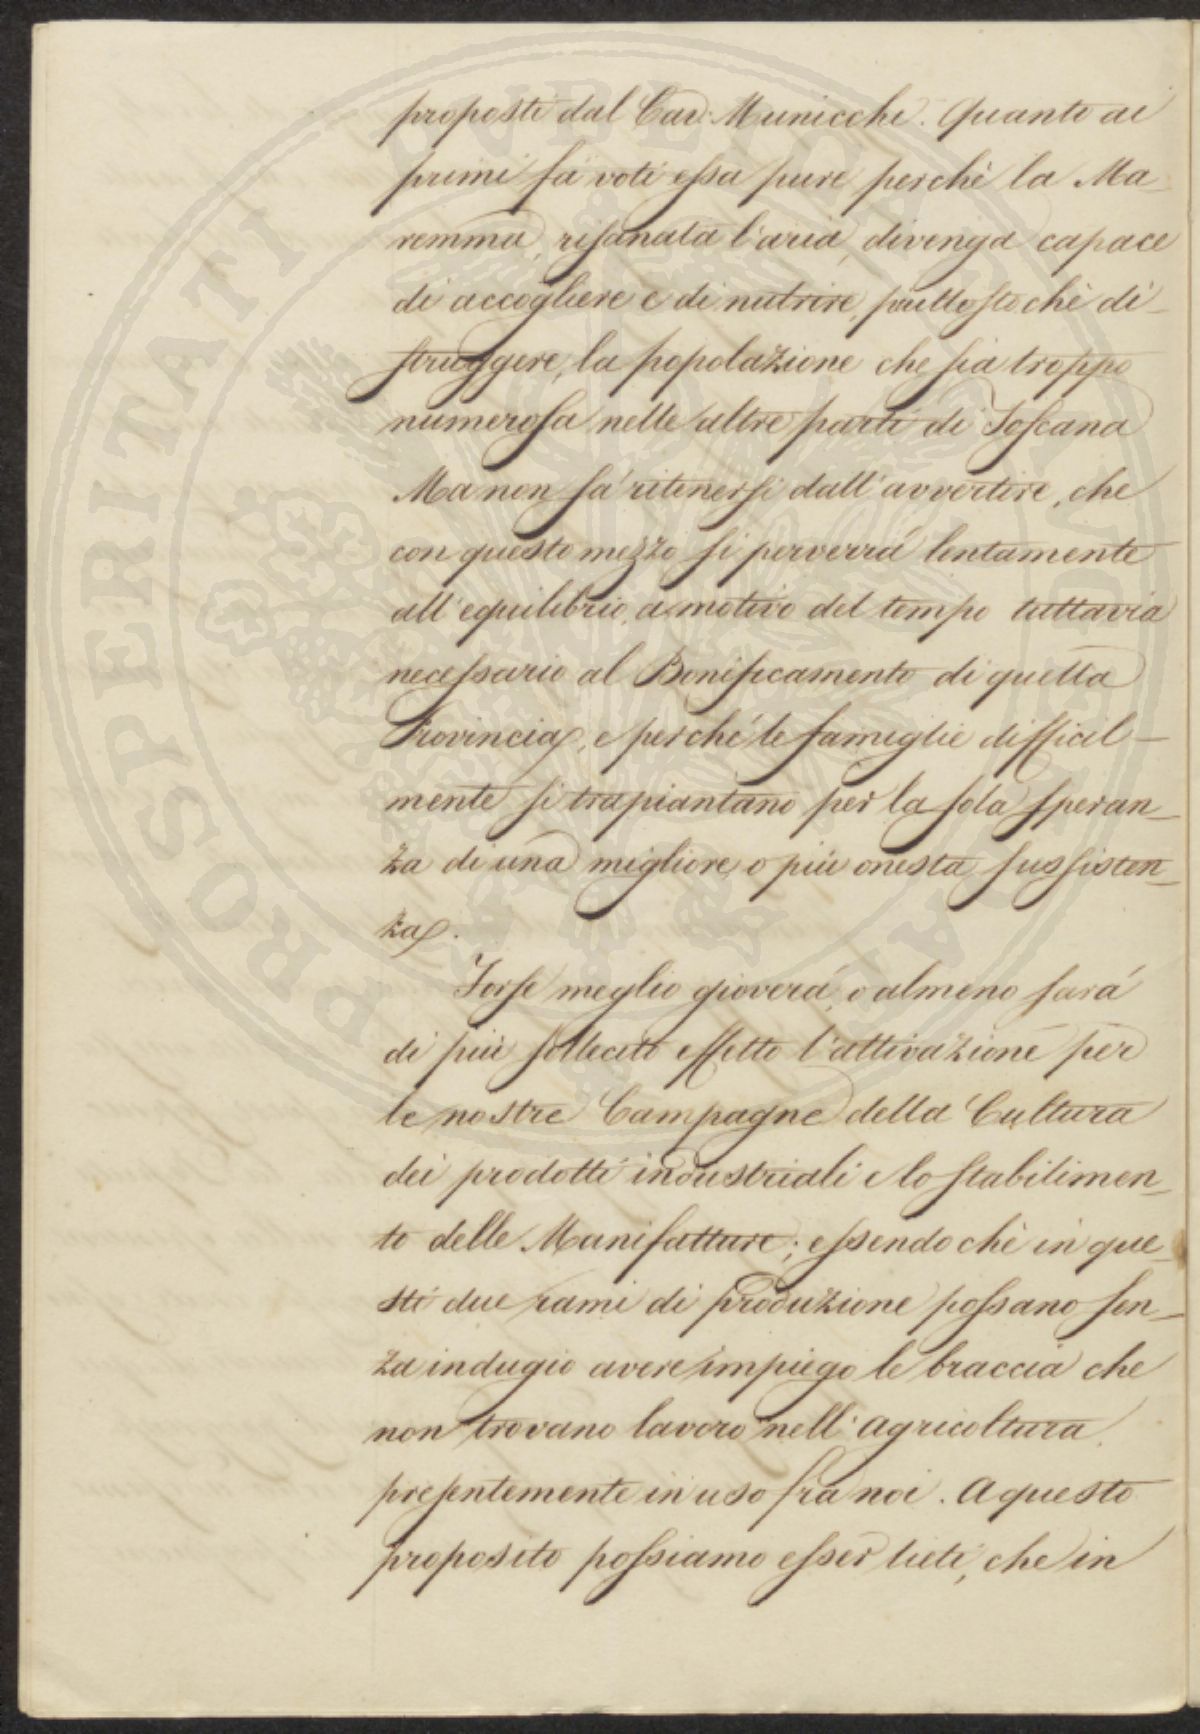 proposti dal Cav: Municchi. Quanto ai
primi fà voti essa pure perchè la Ma-
remma, risanata l'aria, divenga capace
di accogliere e di nutrire, piuttosto chè di-
struggere, la popolazione che sia troppo
numerosa nelle altre parti di Toscana
Ma non sà ritenersi dall'avvertire, che
con questo mezzo si perverrà lentamente
all'equilibrio, a motivo del tempo tuttavia
necessario al Bonificamento di quella
Provincia, e perchè le famiglie difficil-
mente si trapiantano per la sola speran-
za di una migliore, o più onesta sussisten-
za.
Forse meglio gioverà, o almeno sarà
di più sollecito effetto l'attivazione per
le nostre Campagne della Cultura
dei prodotti industriali e lo stabilimen-
to delle Manifatture; essendo chè in que-
sti due rami di produzione possano sen-
za indugio avere impiego le braccia che
non trovano lavoro nell'agricoltura
presentemente in uso fra noi. A questo
proposito possiamo esser lieti, che in
PROSPERITATI PVBLICAE AVGENDAE